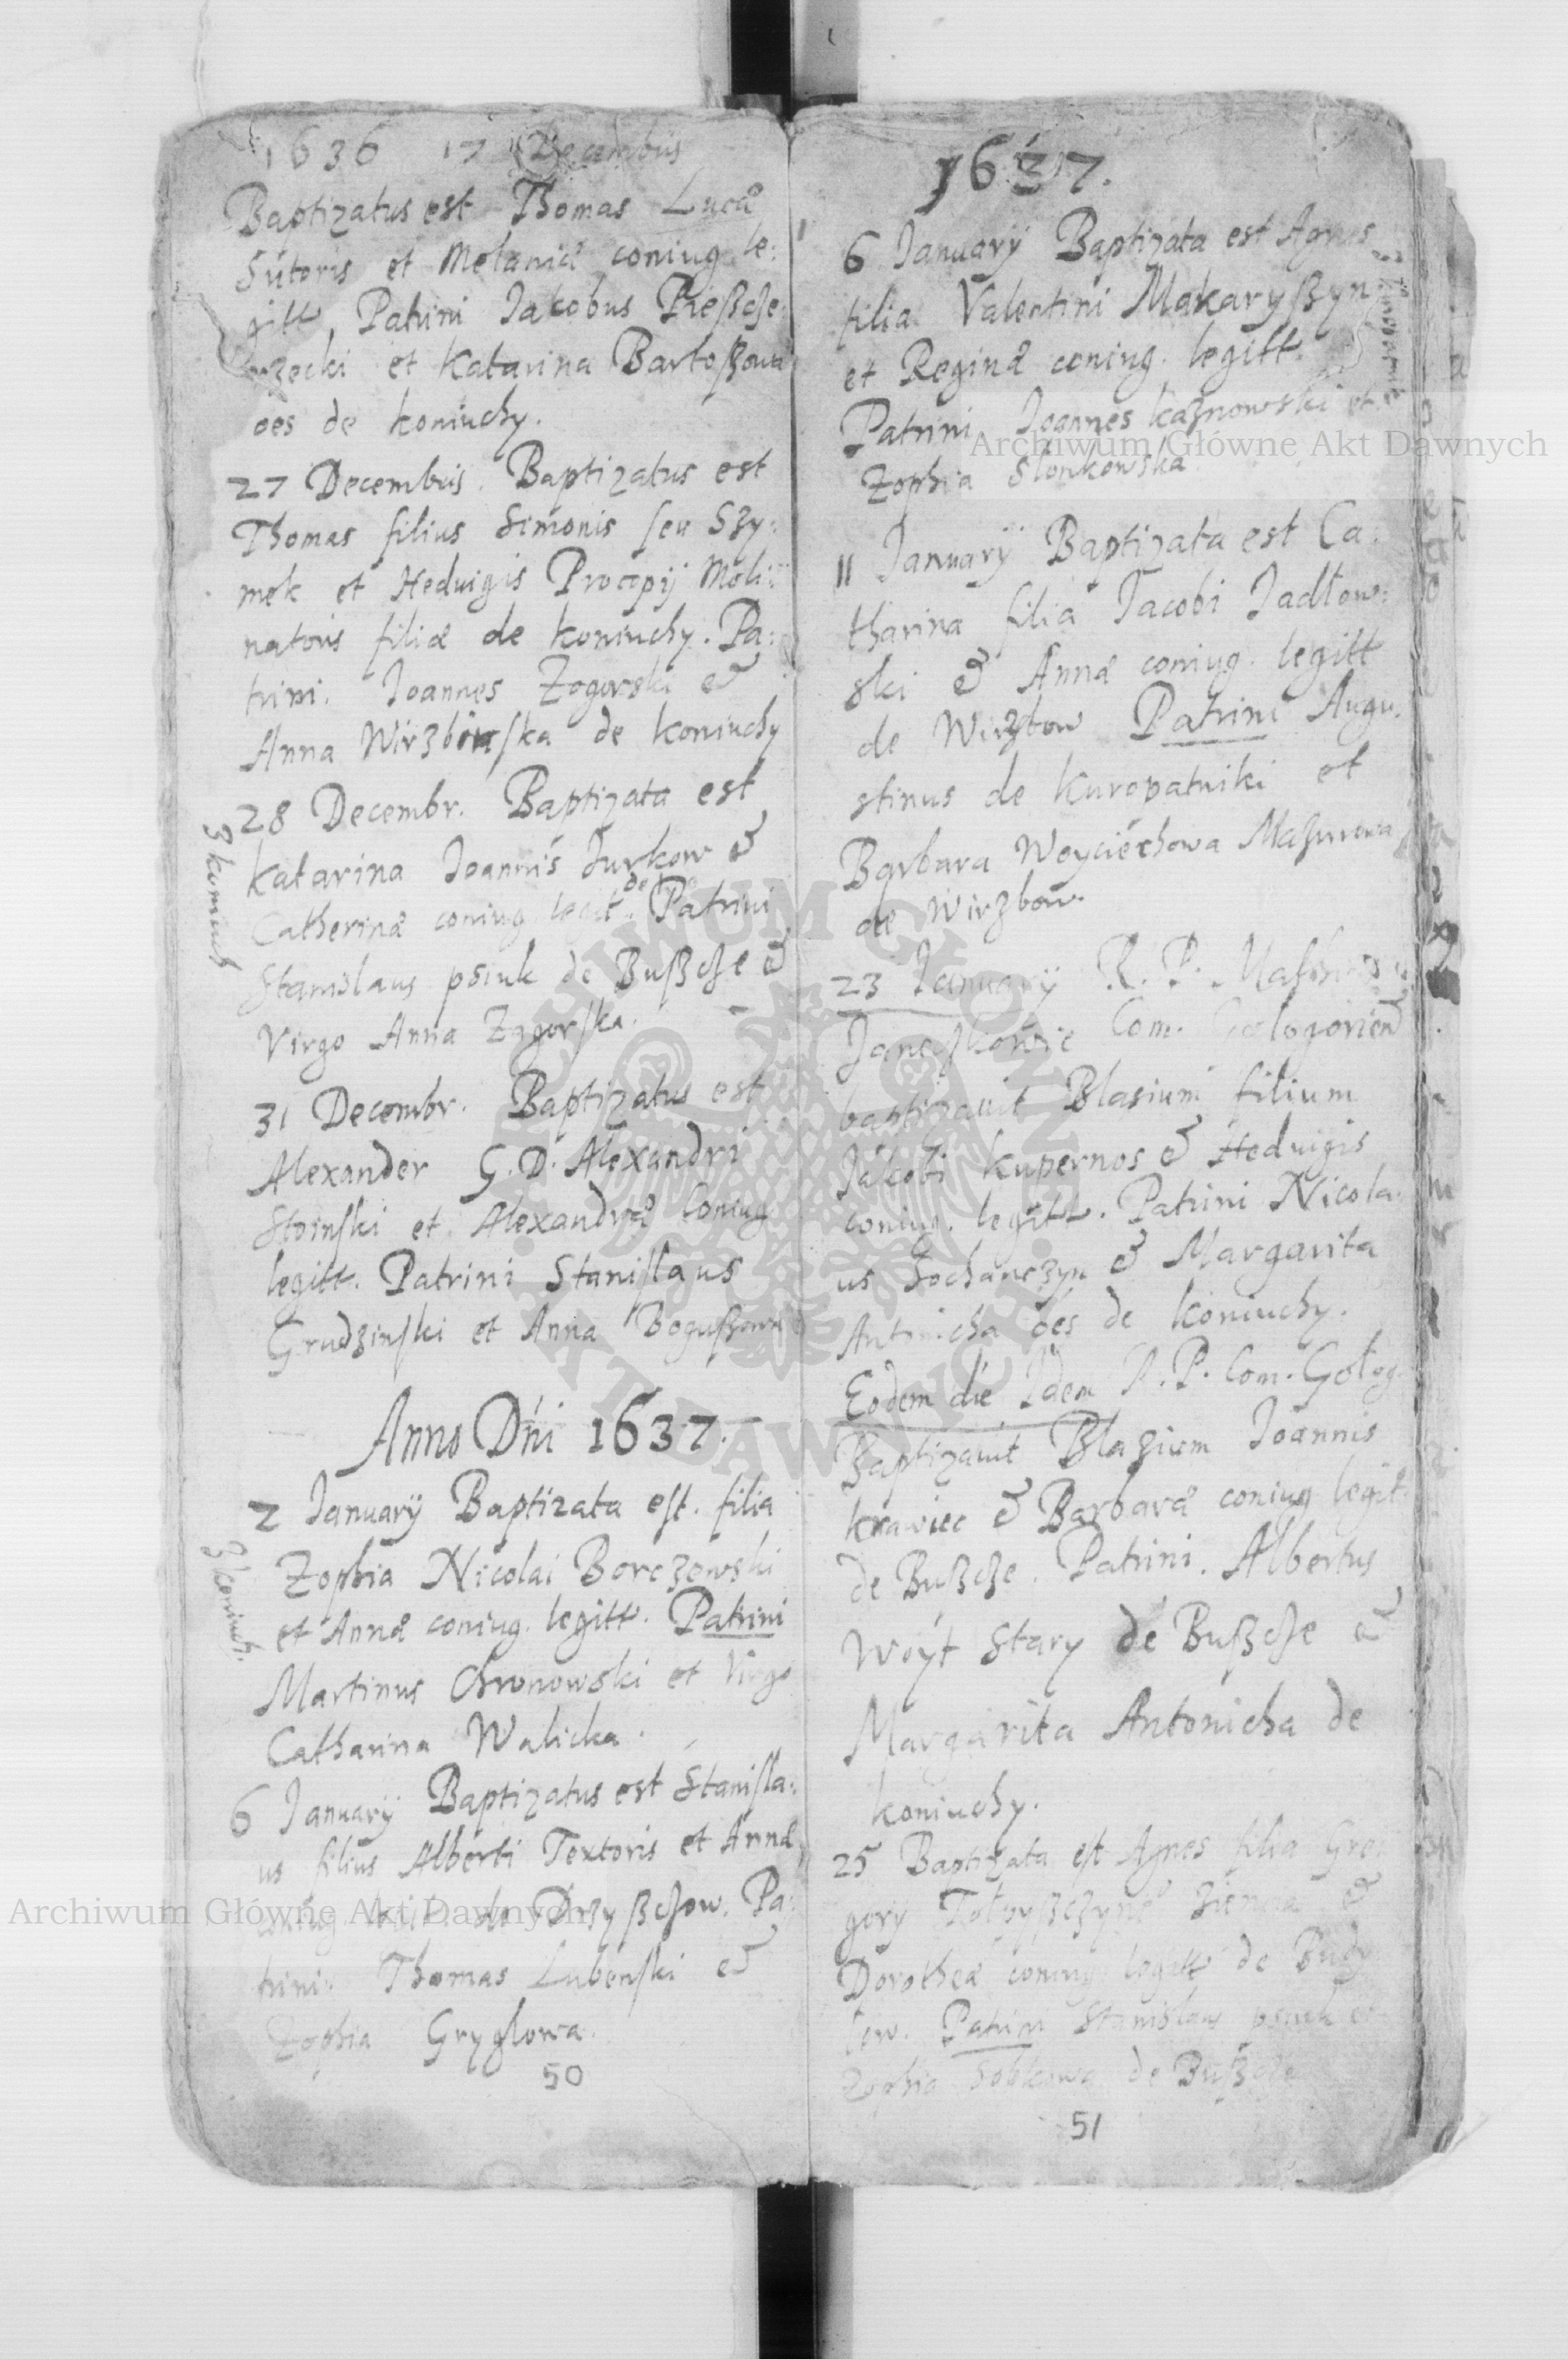 1636 17 Decembris
Baptizatus est Thomas Lucæ
Sutoris et Melaniæ coniug. le:
gitt. Patrini Jakobus Pießcße:
rzecki et Katarina Bartoßowa
oes de koniuchy.
27 Decembris. Baptizatus est
Thomas filius Simonis seu Szy:
mek et Heduigis Procopij Moli:
natoris filiæ de koniuchy. Pa:
trini. Joannes Zogorski &
Anna de koniuchy
28 Decembr. Baptizata est
Katarina Joannis Jurkow &
Catherinæ coniug. legit. Patrini
Stanislaus psiuk de Bußcze &
Virgo Anna Zagorska.
31 Decembr. Baptizatus est
Alexander G. D. Alexandri
et Alexandræ Coniug
legitt. Patrini Stanislaus
Grudzinski et Anna Bogußowa
Anno Dni 1637.
2 January Baptizata est. filia
Zophia Nicolai Borczewski
et Annæ coniug. legitt. Patrini
Martinus Chronowski et Virgo
Catharina Walicka.
6 January Baptizatus est Stanisla:
us filius Alberti Textoris et Annæ
coniug. de Drzyßczow. Pa:
trini. Thomas Lubenski &
Zophia Gryglowa.
50
1637.
6 January Baptizata est Agnes
filia Valentini Makaryßyn
et Reginæ coniug. legitt.
Patrini Joannes Kaznowski et
Zophia Slonkowska
11 January Baptizata est Ca:
tharina filia Jacobi Jadłow:
ski & Annæ coniug. legitt
de Wirzbow Patrini Augu:
stinus de Kuropatniki et
Barbara Woyciechowa Mazurowa
de Wirzbow.
23 January R. P.
Com.
baptizauit Blasium filium
Jakobi kupernos & Heduigis
coniug. legitt. Patrini Nicola:
us Sochanczyn & Margarita
Antonicha oes de koniuchy.
Eodem die Idem R. P. Com. Gołog.
Baptizauit Blazium Joannis
krawiec & Barbaræ coniug legit.
de Bußcze. Patrini. Albertus
Woyt Stary de Bußcze &
Margarita Antonicha de
koniuchy.
25 Baptizata est Agnes filia Gre
gory &
Dorotheæ coniug legitt de
Patrini Stanislaus psiuk et
Zophia Sobkowa de Bußcze
51
Archiwum Główne Akt Dawnych
Archiwum Główne Akt Dawnych
ARCHIWUM GŁÓWNE AKT DAWNYCH